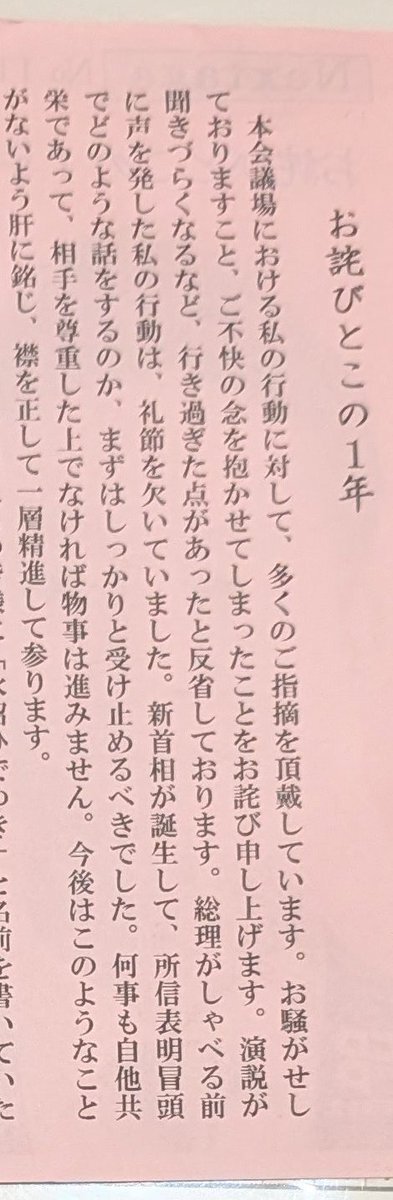 お詫びとこの1年
本会議場における私の行動に対して、多くのご指摘を頂戴しています。お騒がせし
ておりますこと、ご不快の念を抱かせてしまったことをお詫び申し上げます。演説が
聞きづらくなるなど、行き過ぎた点があったと反省しております。総理がしゃべる前
に声を発した私の行動は、礼節を欠いていました。新首相が誕生して、所信表明冒頭
でどのような話をするのか、まずはしっかりと受け止めるべきでした。何事も自他共
栄であって、相手を尊重した上でなければ物事は進みません。今後はこのようなこと
がないよう肝に銘じ、襟を正して一層精進して参ります。
と名前を書いていた